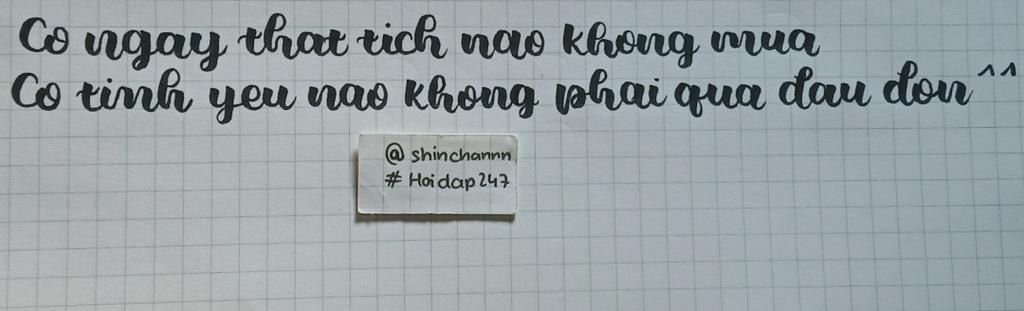 Co ngay that tich nao khong mua
Co tinh yeu nao khong phai qua dau don ^^
@ shinchannn
# Hoidap247